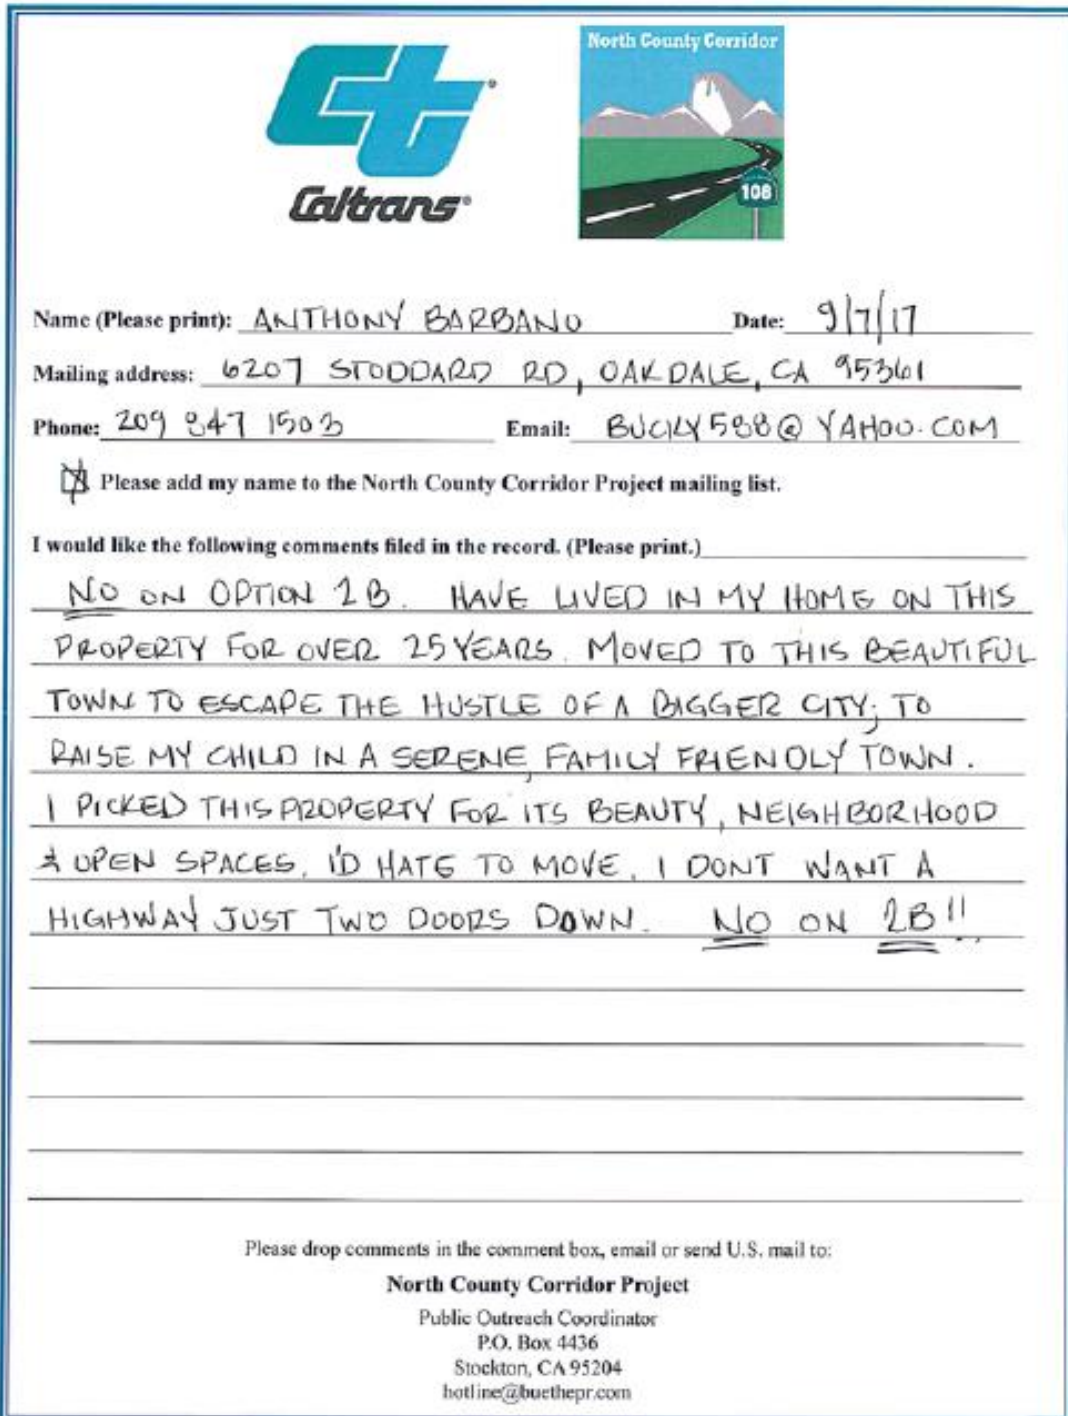 North County Corridor
Caltrans®
108
Name (Please print): ANTHONY BARBANO Date: 9/7/17
Mailing address: 6207 STODDARD RD, OAKDALE, CA 95361
Phone: 209 847 1503 Email: BUCKY588@YAHOO.COM
Please add my name to the North County Corridor Project mailing list.
I would like the following comments filed in the record. (Please print.)
NO ON OPTION 2B. HAVE LIVED IN MY HOME ON THIS
PROPERTY FOR OVER 25 YEARS. MOVED TO THIS BEAUTIFUL
TOWN TO ESCAPE THE HUSTLE OF A BIGGER CITY; TO
RAISE MY CHILD IN A SERENE, FAMILY FRIENDLY TOWN.
I PICKED THIS PROPERTY FOR ITS BEAUTY, NEIGHBORHOOD
& OPEN SPACES. I'D HATE TO MOVE. I DONT WANT A
HIGHWAY JUST TWO DOORS DOWN. NO ON 2B!!
Please drop comments in the comment box, email or send U.S. mail to:
North County Corridor Project
Public Outreach Coordinator
P.O. Box 4436
Stockton, CA 95204
hotline@buethepr.com